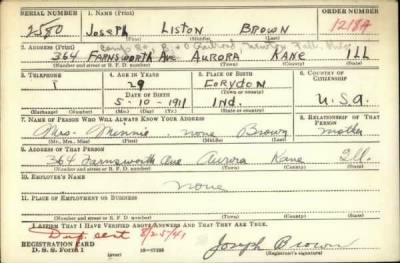 SERIAL NUMBER 1. NAME (Print) ORDER NUMBER
2580 Joseph Liston Brown 1218A
(First) (Middle) (Last)
2. ADDRESS (Print)
364 Farnsworth Ave Aurora Kane Ill
(Number and street or R. F. D. number) (Town) (County) (State)
3. TELEPHONE 4. AGE IN YEARS 5. PLACE OF BIRTH 6. COUNTRY OF CITIZENSHIP
29 Corydon
DATE OF BIRTH (Town or county)
5-10-1911 Ind. U.S.A.
(Exchange) (Number) (Mo.) (Day) (Yr.) (State or country)
7. NAME OF PERSON WHO WILL ALWAYS KNOW YOUR ADDRESS 8. RELATIONSHIP OF THAT PERSON
Mrs. Minnie none Brown mother
(Mr., Mrs., Miss) (First) (Middle) (Last)
9. ADDRESS OF THAT PERSON
364 Farnsworth Ave Aurora Kane Ill.
(Number and street or R. F. D. number) (Town) (County) (State)
10. EMPLOYER'S NAME
none
11. PLACE OF EMPLOYMENT OR BUSINESS
(Number and street or R. F. D. number) (Town) (County) (State)
I AFFIRM THAT I HAVE VERIFIED ABOVE ANSWERS AND THAT THEY ARE TRUE.
Dup. sent 8/25/41
REGISTRATION CARD
D. S. S. Form 1 Joseph Brown
(over) (Registrant's signature)